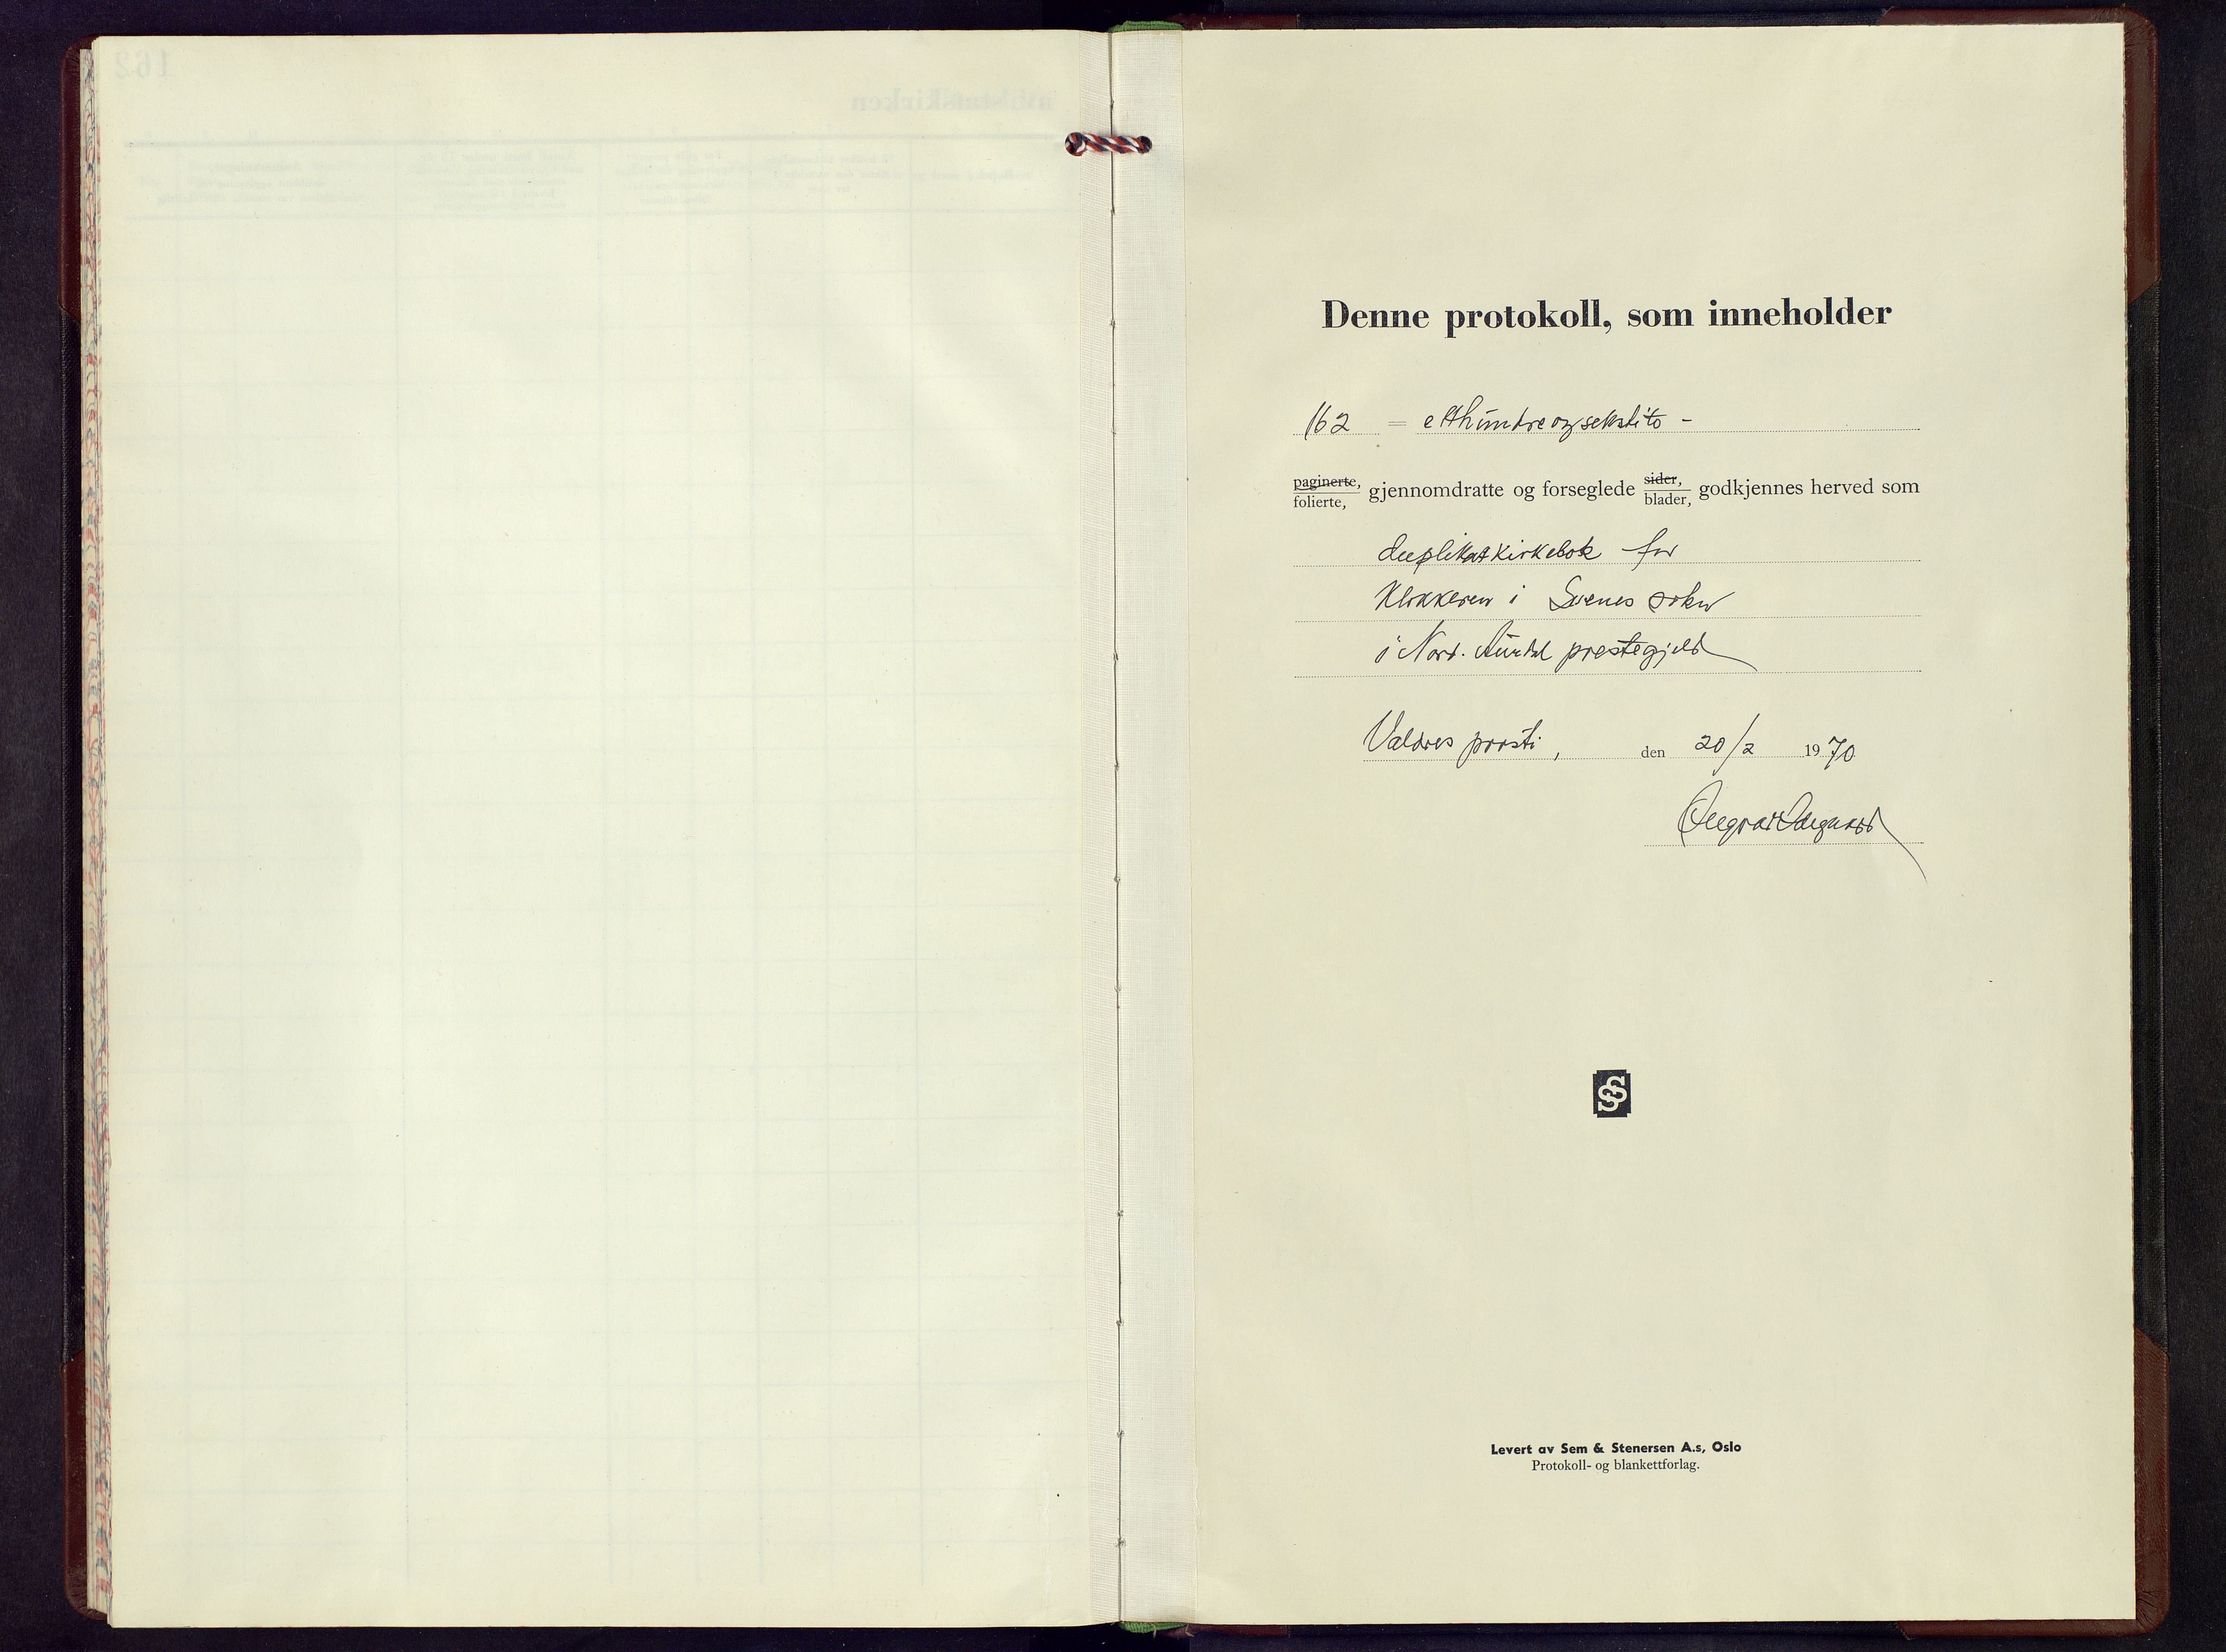 162
Denne protokoll, som inneholder
162 = etthundreogsekstito -
paginerte, folierte, gjennomdratte og forseglede sider, blader, godkjennes herved som
duplikatkirkebok for
klokkeren i Svenes sokn
i Nord-Aurdal prestegjeld
Valdres prosti, den 20/2 1970
SS
Levert av Sem & Stenersen A.s, Oslo
Protokoll- og blankettforlag.